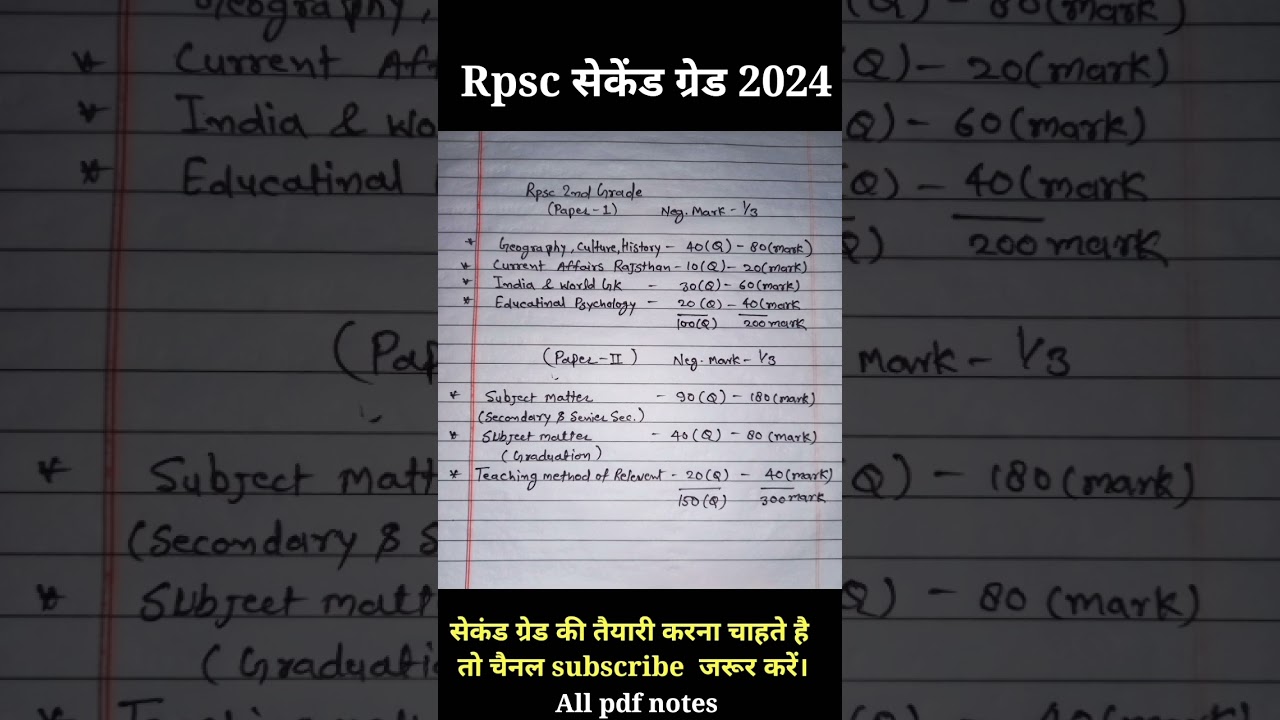 Rpsc सेकेंड ग्रेड 2024
Rpsc 2nd Grade
(Paper-1) Neg. Mark - 1/3
* Geography, Culture, History - 40(Q) - 80(mark)
* Current Affairs Rajsthan - 10(Q) - 20(mark)
* India & World GK - 30(Q) - 60(mark)
* Educatinal Psychology - 20(Q) - 40(mark
100(Q) 200 mark
(Paper-II) Neg. mark - 1/3
* Subject matter - 90(Q) - 180(mark)
(Secondary & Senier Sec.)
* Subject matter - 40(Q) - 80(mark)
(Graduation)
* Teaching method of Relevent - 20(Q) - 40(mark)
150(Q) 300 mark
सेकंड ग्रेड की तैयारी करना चाहते है
तो चैनल subscribe जरूर करें।
All pdf notes